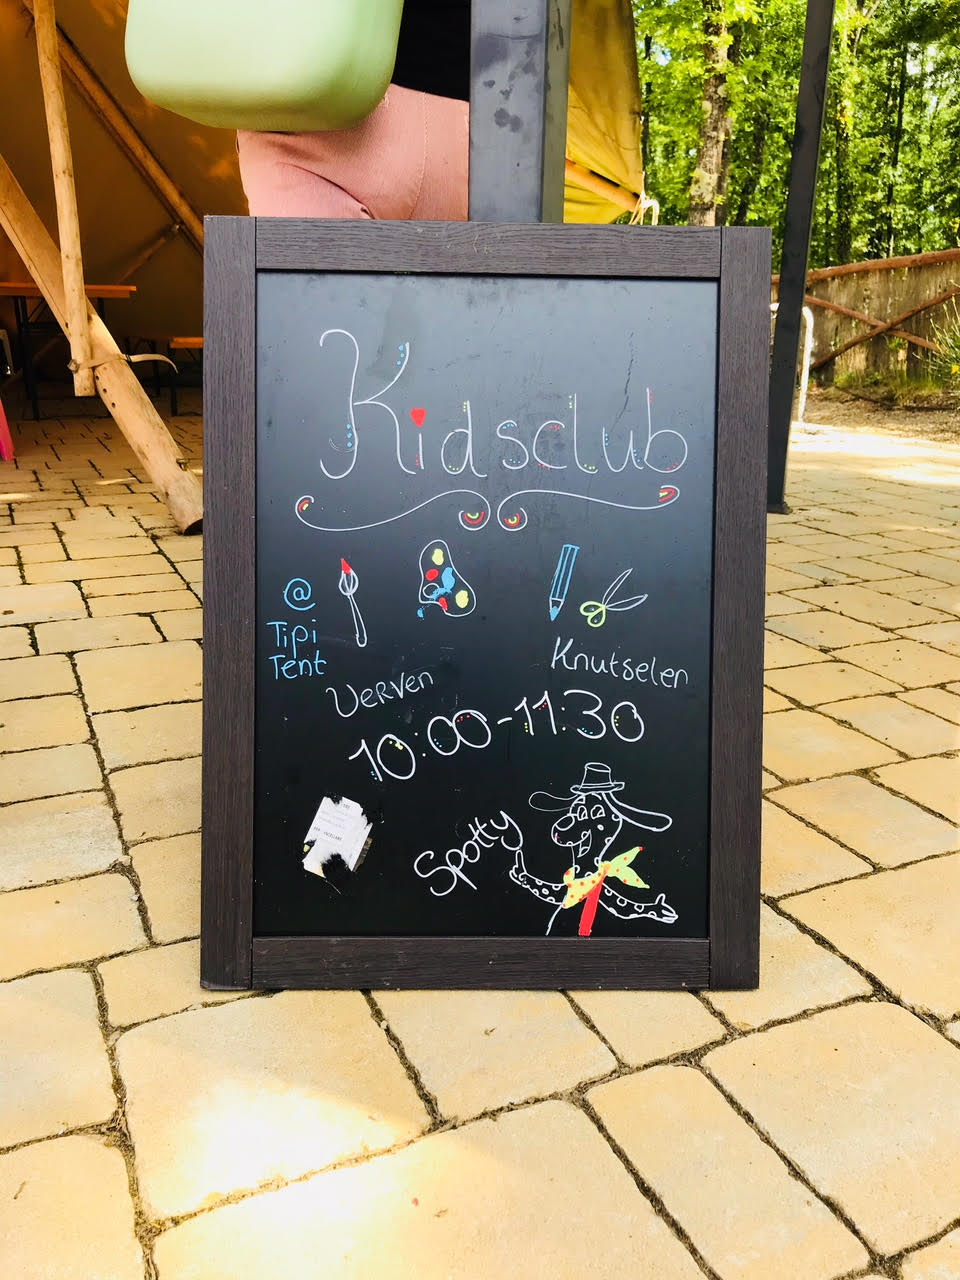 Kidsclub
@
Tipi
Tent
Verven
Knutselen
10:00-11:30
Spotty